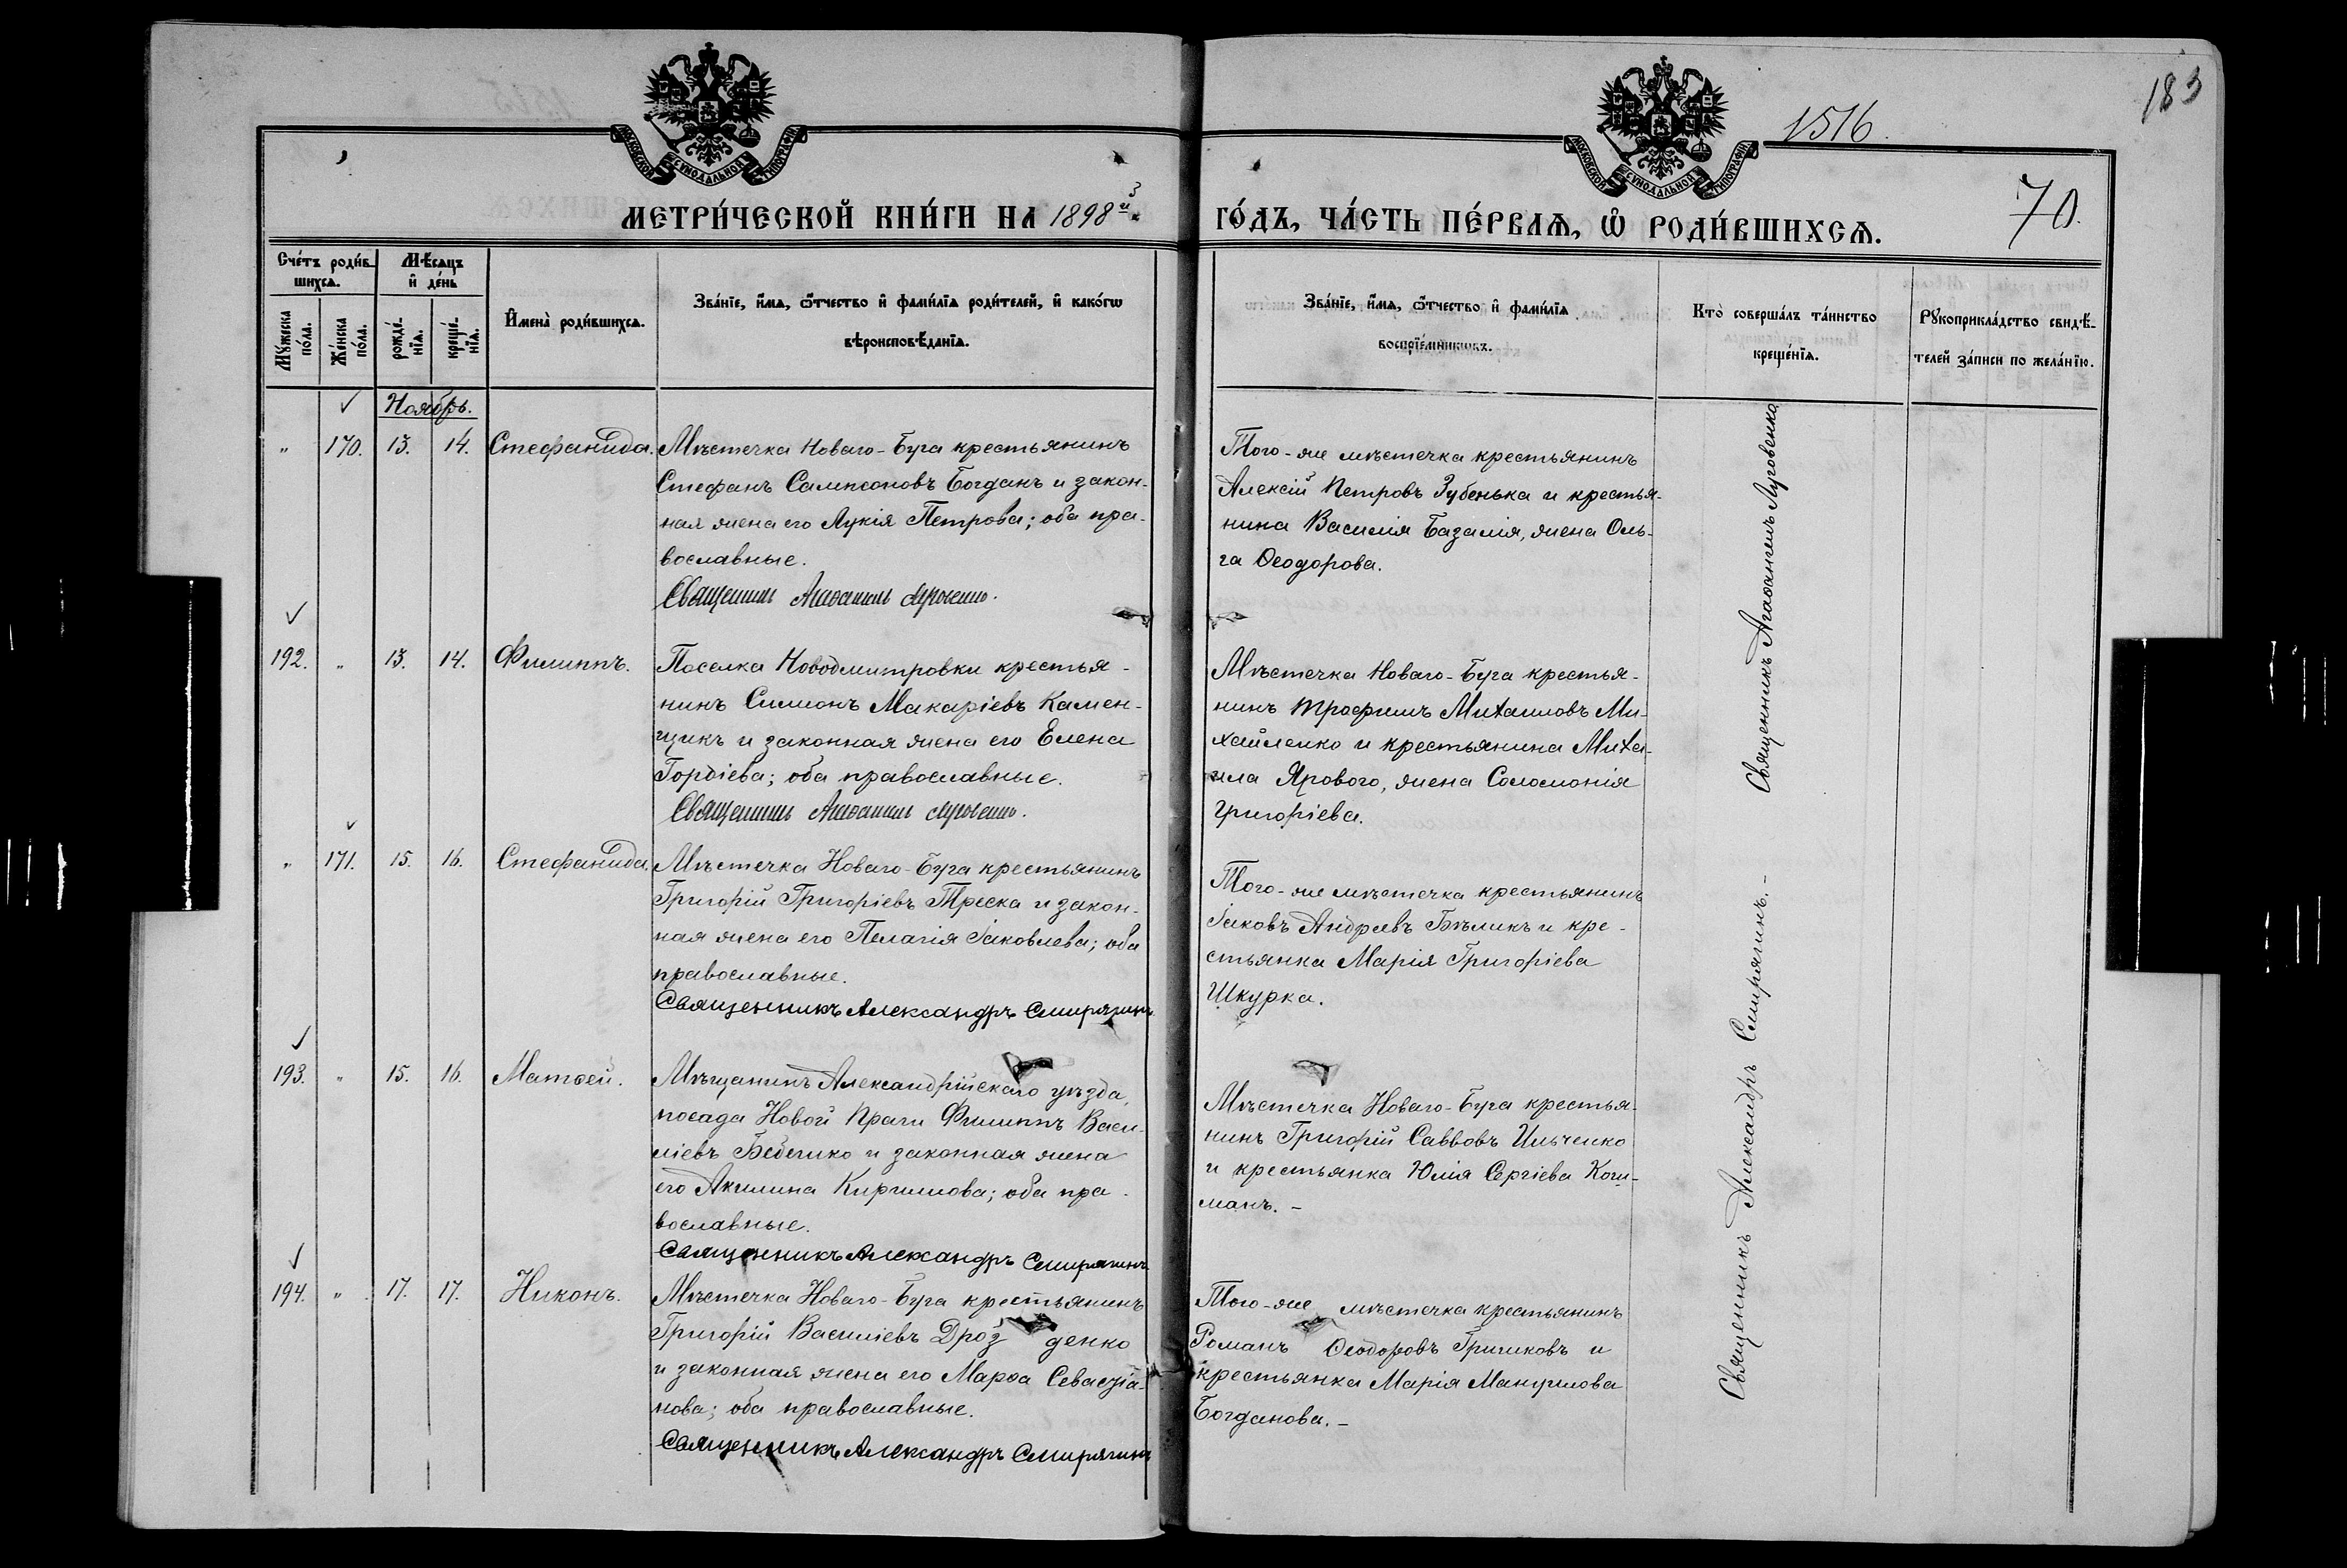 1515
183
1516.
70.
МОСКОВСКОЙ СѴНОДАЛЬНОЙ ТИПОГРАФІИ
МОСКОВСКОЙ СѴНОДАЛЬНОЙ ТИПОГРАФІИ
МЕТРИ́ЧЕСКОЙ КНИ́ГИ НА 1898й
ГО́ДЪ, ЧА́СТЬ ПЕ́РВАЯ, Ѡ РОДИ́ВШИХСЯ.
Сче́тъ роди́в-
шихся.
Мѣсяцъ
и де́нь
Му́жеска
по́ла.
Же́нска
по́ла.
рожде́-
нїя.
креще́-
нїя.
Имена̀ роди́вшихся.
Зва́нїе, и́мя, ѻ́тчество и фами́лїя роди́телей, и како́гѡ
вѣроисповѣ́данїя.
Зва́нїе, и́мя, ѻ́тчество и фами́лїя
воспрїе́мниковъ.
Кто̀ соверша́лъ та́инство
креще́нїя.
Рꙋкоприкла́дство свидѣ́-
телей за́писи по жела́нїю.
Ноябрь.
" 170. 13. 14. Стефанида.
Мѣстечка Новаго-Буга крестьянинъ
Стефанъ Сампсоновъ Богданъ и закон-
ная жена его Лукія Петрова; оба пра-
вославные.
Священникъ Агаѳангелъ Луговенко.
Того-же мѣстечка крестьянинъ
Алексій Петровъ Зубенька и крестья-
нина Василія Базалія, жена Оль-
га Ѳеодорова.
192. " 13. 14. Филиппъ.
Поселка Новодмитровки крестья-
нинъ Симеонъ Макаріевъ Камен-
щикъ и законная жена его Елена
Гордіева; оба православные.
Священникъ Агаѳангелъ Луговенко.
Мѣстечка Новаго-Буга крестья-
нинъ Трофимъ Михаиловъ Ми-
хайленко и крестьянина Миха-
ила Ярового, жена Соломонія
Григоріева.
" 171. 15. 16. Стефанида.
Мѣстечка Новаго-Буга крестьянинъ
Григорій Григоріевъ Треска и закон-
ная жена его Пелагія Іаковлева; оба
православные.
Священникъ Александръ Смирягинъ
Того-же мѣстечка крестьянинъ
Іаковъ Андреевъ Бѣликъ и кре-
стьянка Марія Григоріева
Шкурка.
193. " 15. 16. Матѳей.
Мѣщанинъ Александрійскаго уѣзда,
посада Новой Праги Филиппъ Васи-
ліевъ Бебешко и законная жена
его Акилина Кириллова; оба пра-
вославные.
Священникъ Александръ Смирягинъ
Мѣстечка Новаго-Буга крестья-
нинъ Григорій Саввовъ Ильченко
и крестьянка Юлія Сергіева Коги-
манъ. -
194. " 17. 17. Никонъ.
Мѣстечка Новаго-Буга крестьянинъ
Григорій Василіевъ Дроз денко
и законная жена его Марѳа Севастіа-
нова; оба православные.
Священникъ Александръ Смирягинъ
Того-же мѣстечка крестьянинъ
Романъ Ѳеодоровъ Гричиковъ и
крестьянка Марія Мануилова
Богданова. -
Священникъ Агаѳангелъ Луговенко
Священникъ Александръ Смирягинъ. -